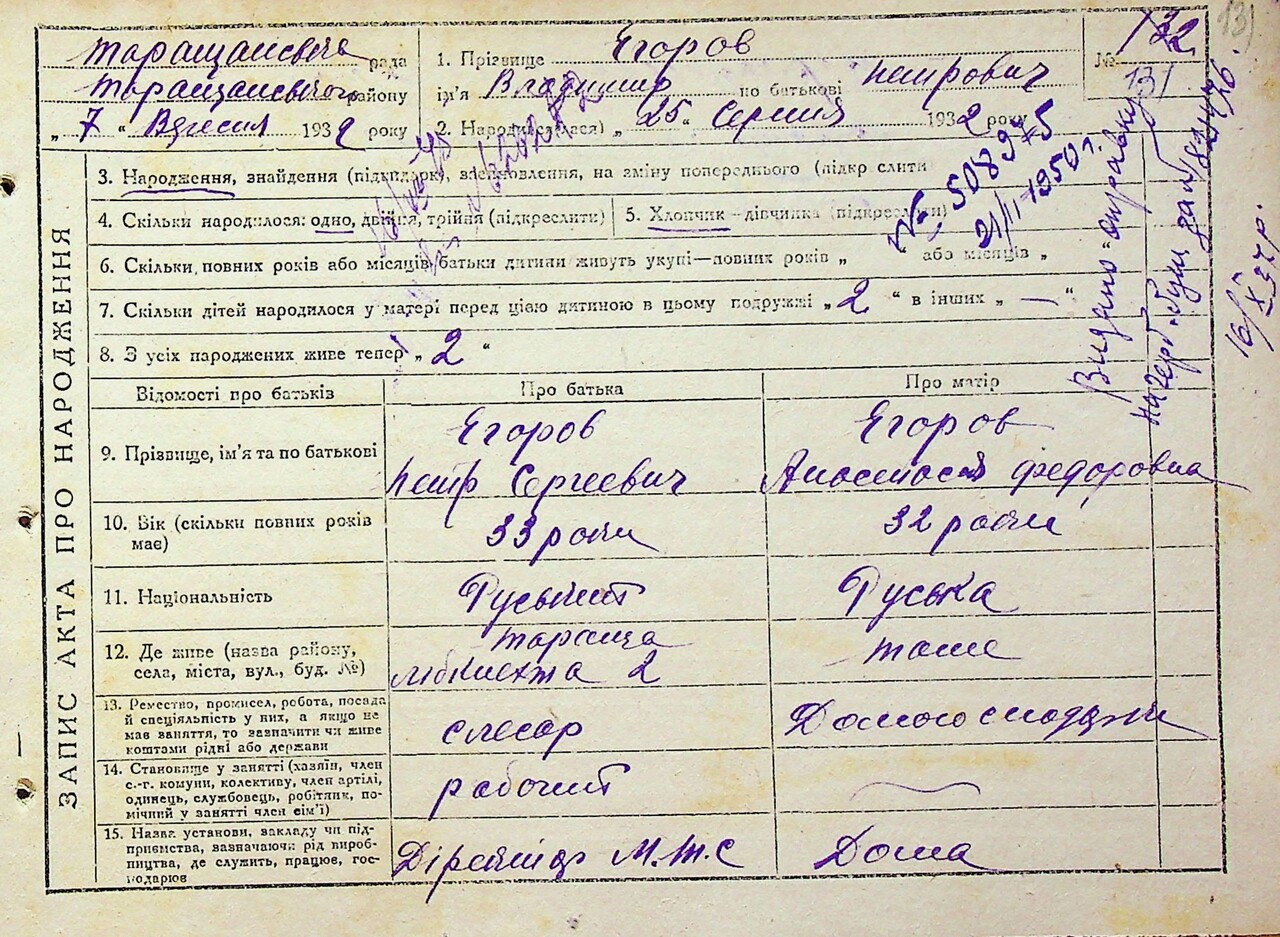 131
Таращанська рада
Таращанського району
„ 7 “ Вересня 1932 року
1. Прізвище Єгоров
ім'я Владимир по батькові Петрович
2. Народився(лася) „ 25 “ Серпня 1932 року
№ 132
131
ЗАПИС АКТА ПРО НАРОДЖЕННЯ
3. Народження, знайдення (підкидарк), встановлення, на зміну попереднього (підкреслити
4. Скільки народилося: одно, двійня, трійня (підкреслити)
5. Хлопчик—дівчинка (підкреслити)
6. Скільки повних років або місяців батьки дитини живуть укупі—повних років „ або місяців „
7. Скільки дітей народилося у матері перед цією дитиною в цьому подружжі „ 2 “ в інших „ — “
8. З усіх народжених живе тепер „ 2 “
№ 508975
21/II 1950 г.
Видано справку
16/X 37 р.
Відомості про батьків
Про батька
Про матір
9. Прізвище, ім'я та по батькові
Єгоров
Петр Сергеевич
Єгоров
Анастасія Федоровна
10. Вік (скільки повних років
має)
33 роки
32 роки
11. Національність
Руський
Руська
12. Де живе (назва району,
села, міста, вул., буд. №)
Тараща
2
тоже
13. Ремество, промисел, робота, посада
й спеціяльність у них, а якщо не
має заняття, то зазначити чи живе
коштами рідні або держави
слесар
14. Становище у занятті (хазяїн, член
с.-г. комуни, колективу, член артілі,
одинець, службовець, робітник, по-
мічний у занятті член сім'ї)
рабочий
15. Назва установи, закладу чи під-
приємства, зазначаючи рід вироб-
ництва, де служить, працює, гос-
подарює
М.Т.С
Дома